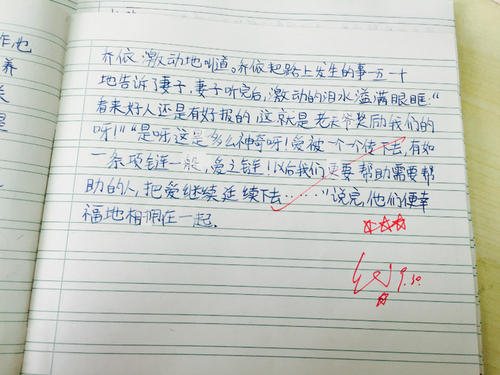 乔依激动地叫道。乔依把路上发生的事一五一十
地告诉了妻子，妻子听完后，激动的泪水溢满眼眶：“
看来好人还是有好报的，这就是老天爷奖励我们的
呀！”“是呀这是多么神奇呀！爱被一个一个传下去，有如
一条项链一般，爱之链！以后我们更要帮助需要帮
助的人，把爱继续延续下去……”说完，他们便幸
福地相拥在一起。
9.10.